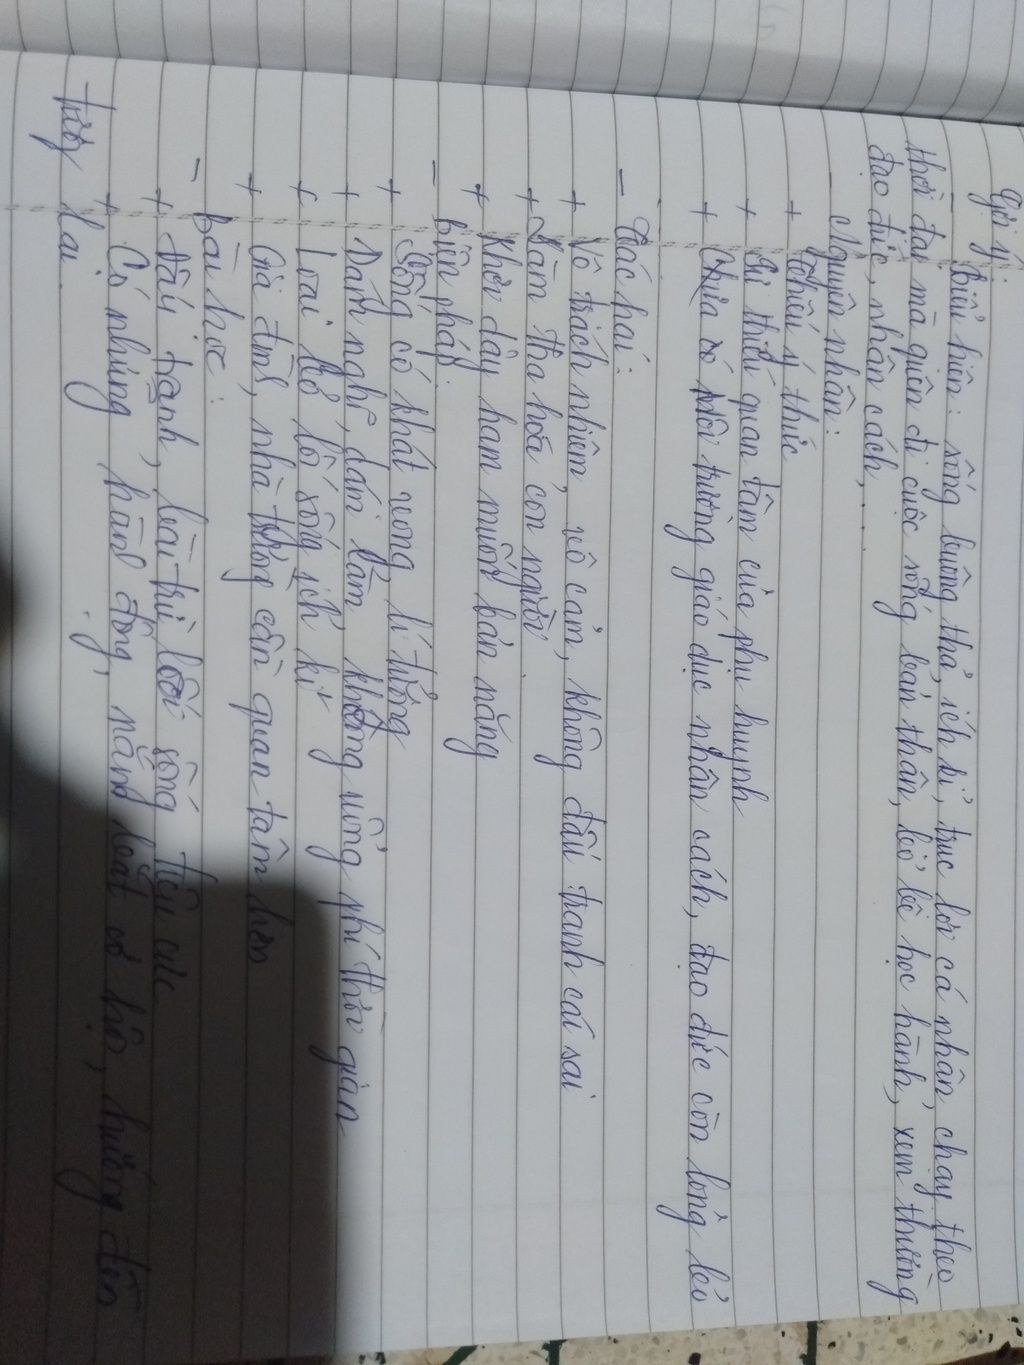 Gợi ý
Biểu hiện: sống buông thả, ích kỉ, trục lợi cá nhân, chạy theo
thời đại mà quên đi cuộc sống bản thân, bỏ bê học hành, xem thường
đạo đức, nhân cách, ....
- Nguyên nhân:
+ Thiếu ý thức
+ Sự thiếu quan tâm của phụ huynh
+ Chưa có môi trường giáo dục nhân cách, đạo đức còn lỏng lẻo
- Tác hại:
+ Vô trách nhiệm, vô cảm, không đấu tranh cái sai
+ Làm tha hoá con người
+ Khơi dậy ham muốn bản năng
- Biện pháp
+ Sống có khát vọng lí tưởng
+ Dám nghĩ, dám làm, không uổng phí thời gian
+ Loại bỏ lối sống ích kỉ
+ Gia đình, nhà trường cần quan tâm hơn
- Bài học:
+ Đấu tranh, bài trừ lối sống tiêu cực
+ Có những hành động, nắm bắt cơ hội, hướng đến
tương lai.